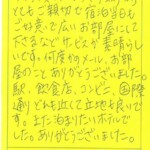 とてもご親切で宿泊当日も
ご好意で広いお部屋にして
下さるなどサービスが素晴らし
いです。何度かのメール、お部屋
のことありがとうございました。
駅、飲食店、コンビニ、国際
通りどれも近くて立地も良いで
す。また泊まりたいホテルで
した。ありがとうございました。